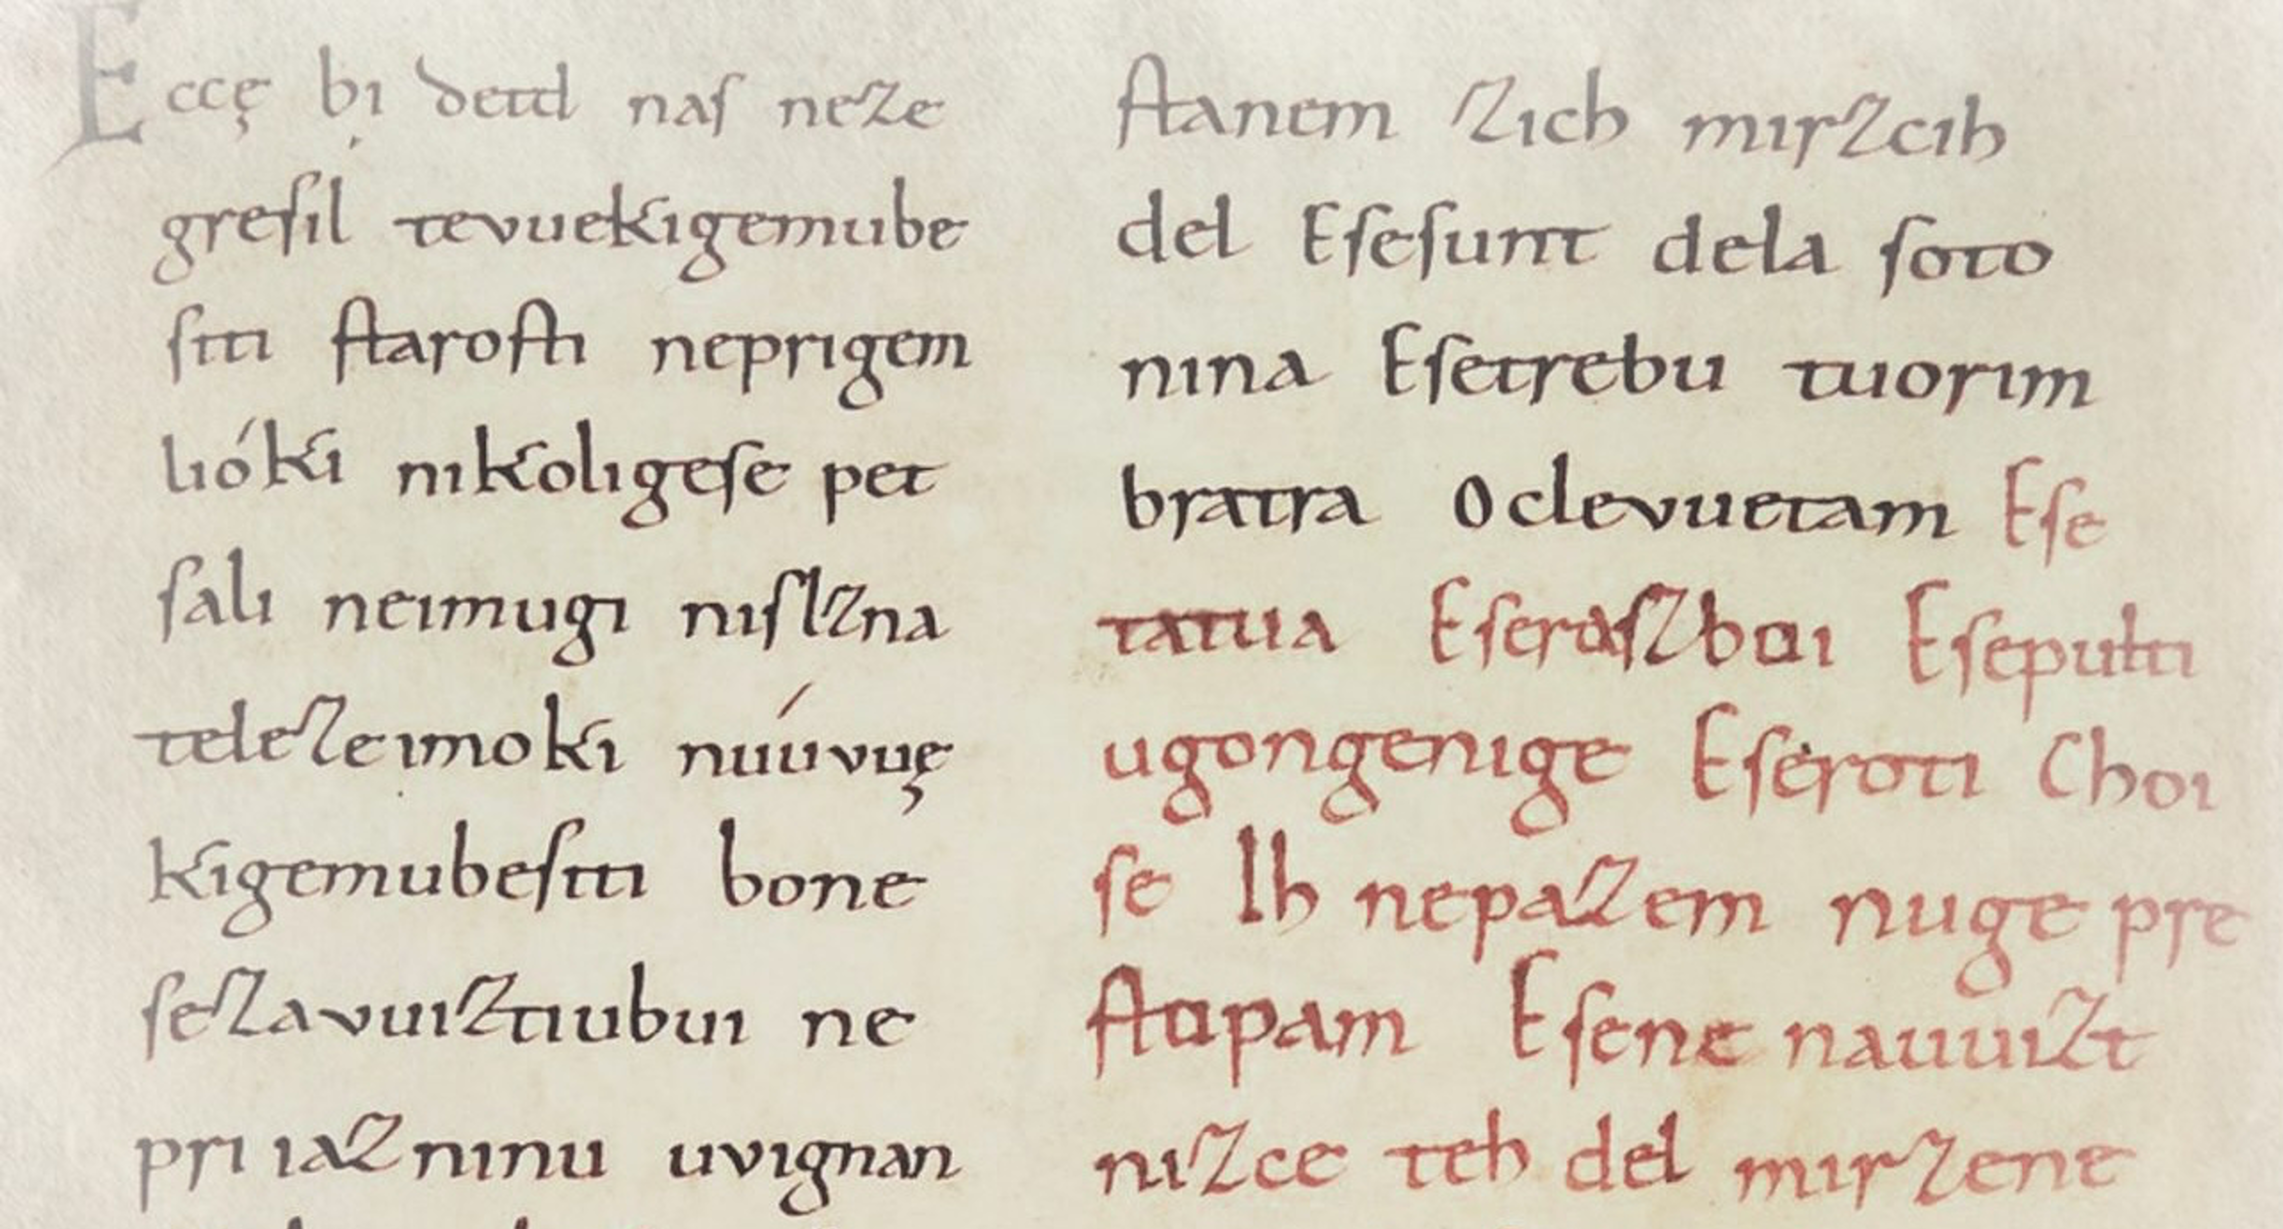 Eccę bi detd naſ neze
greſil tevuekigemube
ſiti ſtaroſti neprigem
lióki nikoligeſe pet
ſali neimugi niſlzna
telezeimoki nuúvuę
kigemubeſiti bone
ſezavuiztiubui ne
priiazninu uvignan
ſtanem zich mirzcih
del Eſeſunt dela ſoto
nina Eſetrebu tuorim
bratra Oclevuetam Eſe
tatua Eſeraſzboi Eſepulti
ugongenige Eſeroti Choi
ſe Ih nepazem nuge pre
ſtopam Eſene nauuizt
nizce teh del mirzene